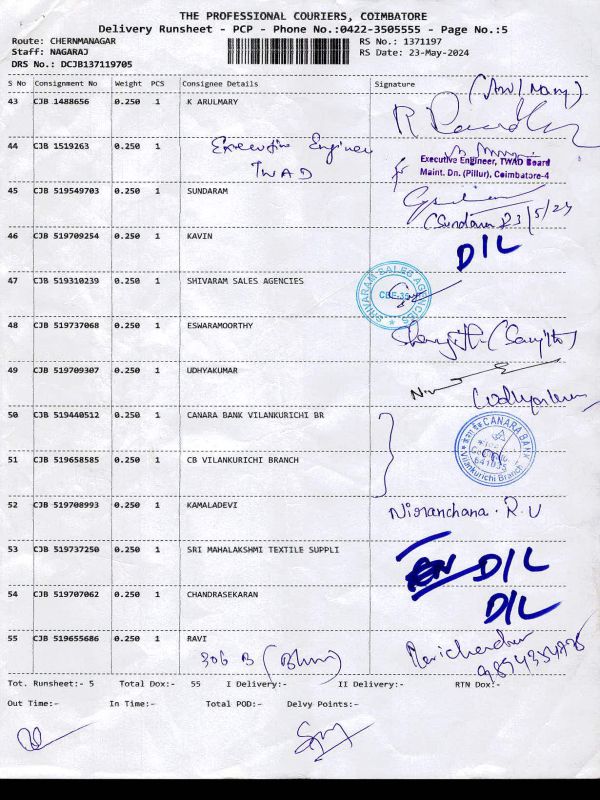 THE PROFESSIONAL COURIERS, COIMBATORE
Delivery Runsheet - PCP - Phone No.:0422-3505555 - Page No.:5
Route: CHERNMANAGAR RS No.: 1371197
Staff: NAGARAJ RS Date: 23-May-2024
DRS No.: DCJB137119705
S No Consignment No Weight PCS Consignee Details Signature
43 CJB 1488656 0.250 1 K ARULMARY
44 CJB 1519263 0.250 1 Executive Engineer
TWAD
Executive Engineer, TWAD Board
Maint. Dn. (Pillur), Coimbatore-4
45 CJB 519549703 0.250 1 SUNDARAM
(Sundaram 23/5/24
46 CJB 519709254 0.250 1 KAVIN D/L
47 CJB 519310239 0.250 1 SHIVARAM SALES AGENCIES SHIVARAM SALES AGENCIES CBE-35
48 CJB 519737068 0.250 1 ESWARAMOORTHY
49 CJB 519709307 0.250 1 UDHYAKUMAR
50 CJB 519440512 0.250 1 CANARA BANK VILANKURICHI BR
CANARA BANK
641035
Vilankurichi Branch
51 CJB 519658585 0.250 1 CB VILANKURICHI BRANCH
52 CJB 519708993 0.250 1 KAMALADEVI Niranchana . R. U
53 CJB 519737250 0.250 1 SRI MAHALAKSHMI TEXTILE SUPPLI D/L
54 CJB 519707062 0.250 1 CHANDRASEKARAN D/L
55 CJB 519655686 0.250 1 RAVI
306 B
Tot. Runsheet:- 5 Total Dox:- 55 I Delivery:- II Delivery:- RTN Dox:-
Out Time:- In Time:- Total POD:- Delvy Points:-